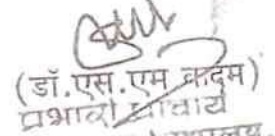 (डॉ.एस.एम कदम)
प्रभारी प्राचार्य